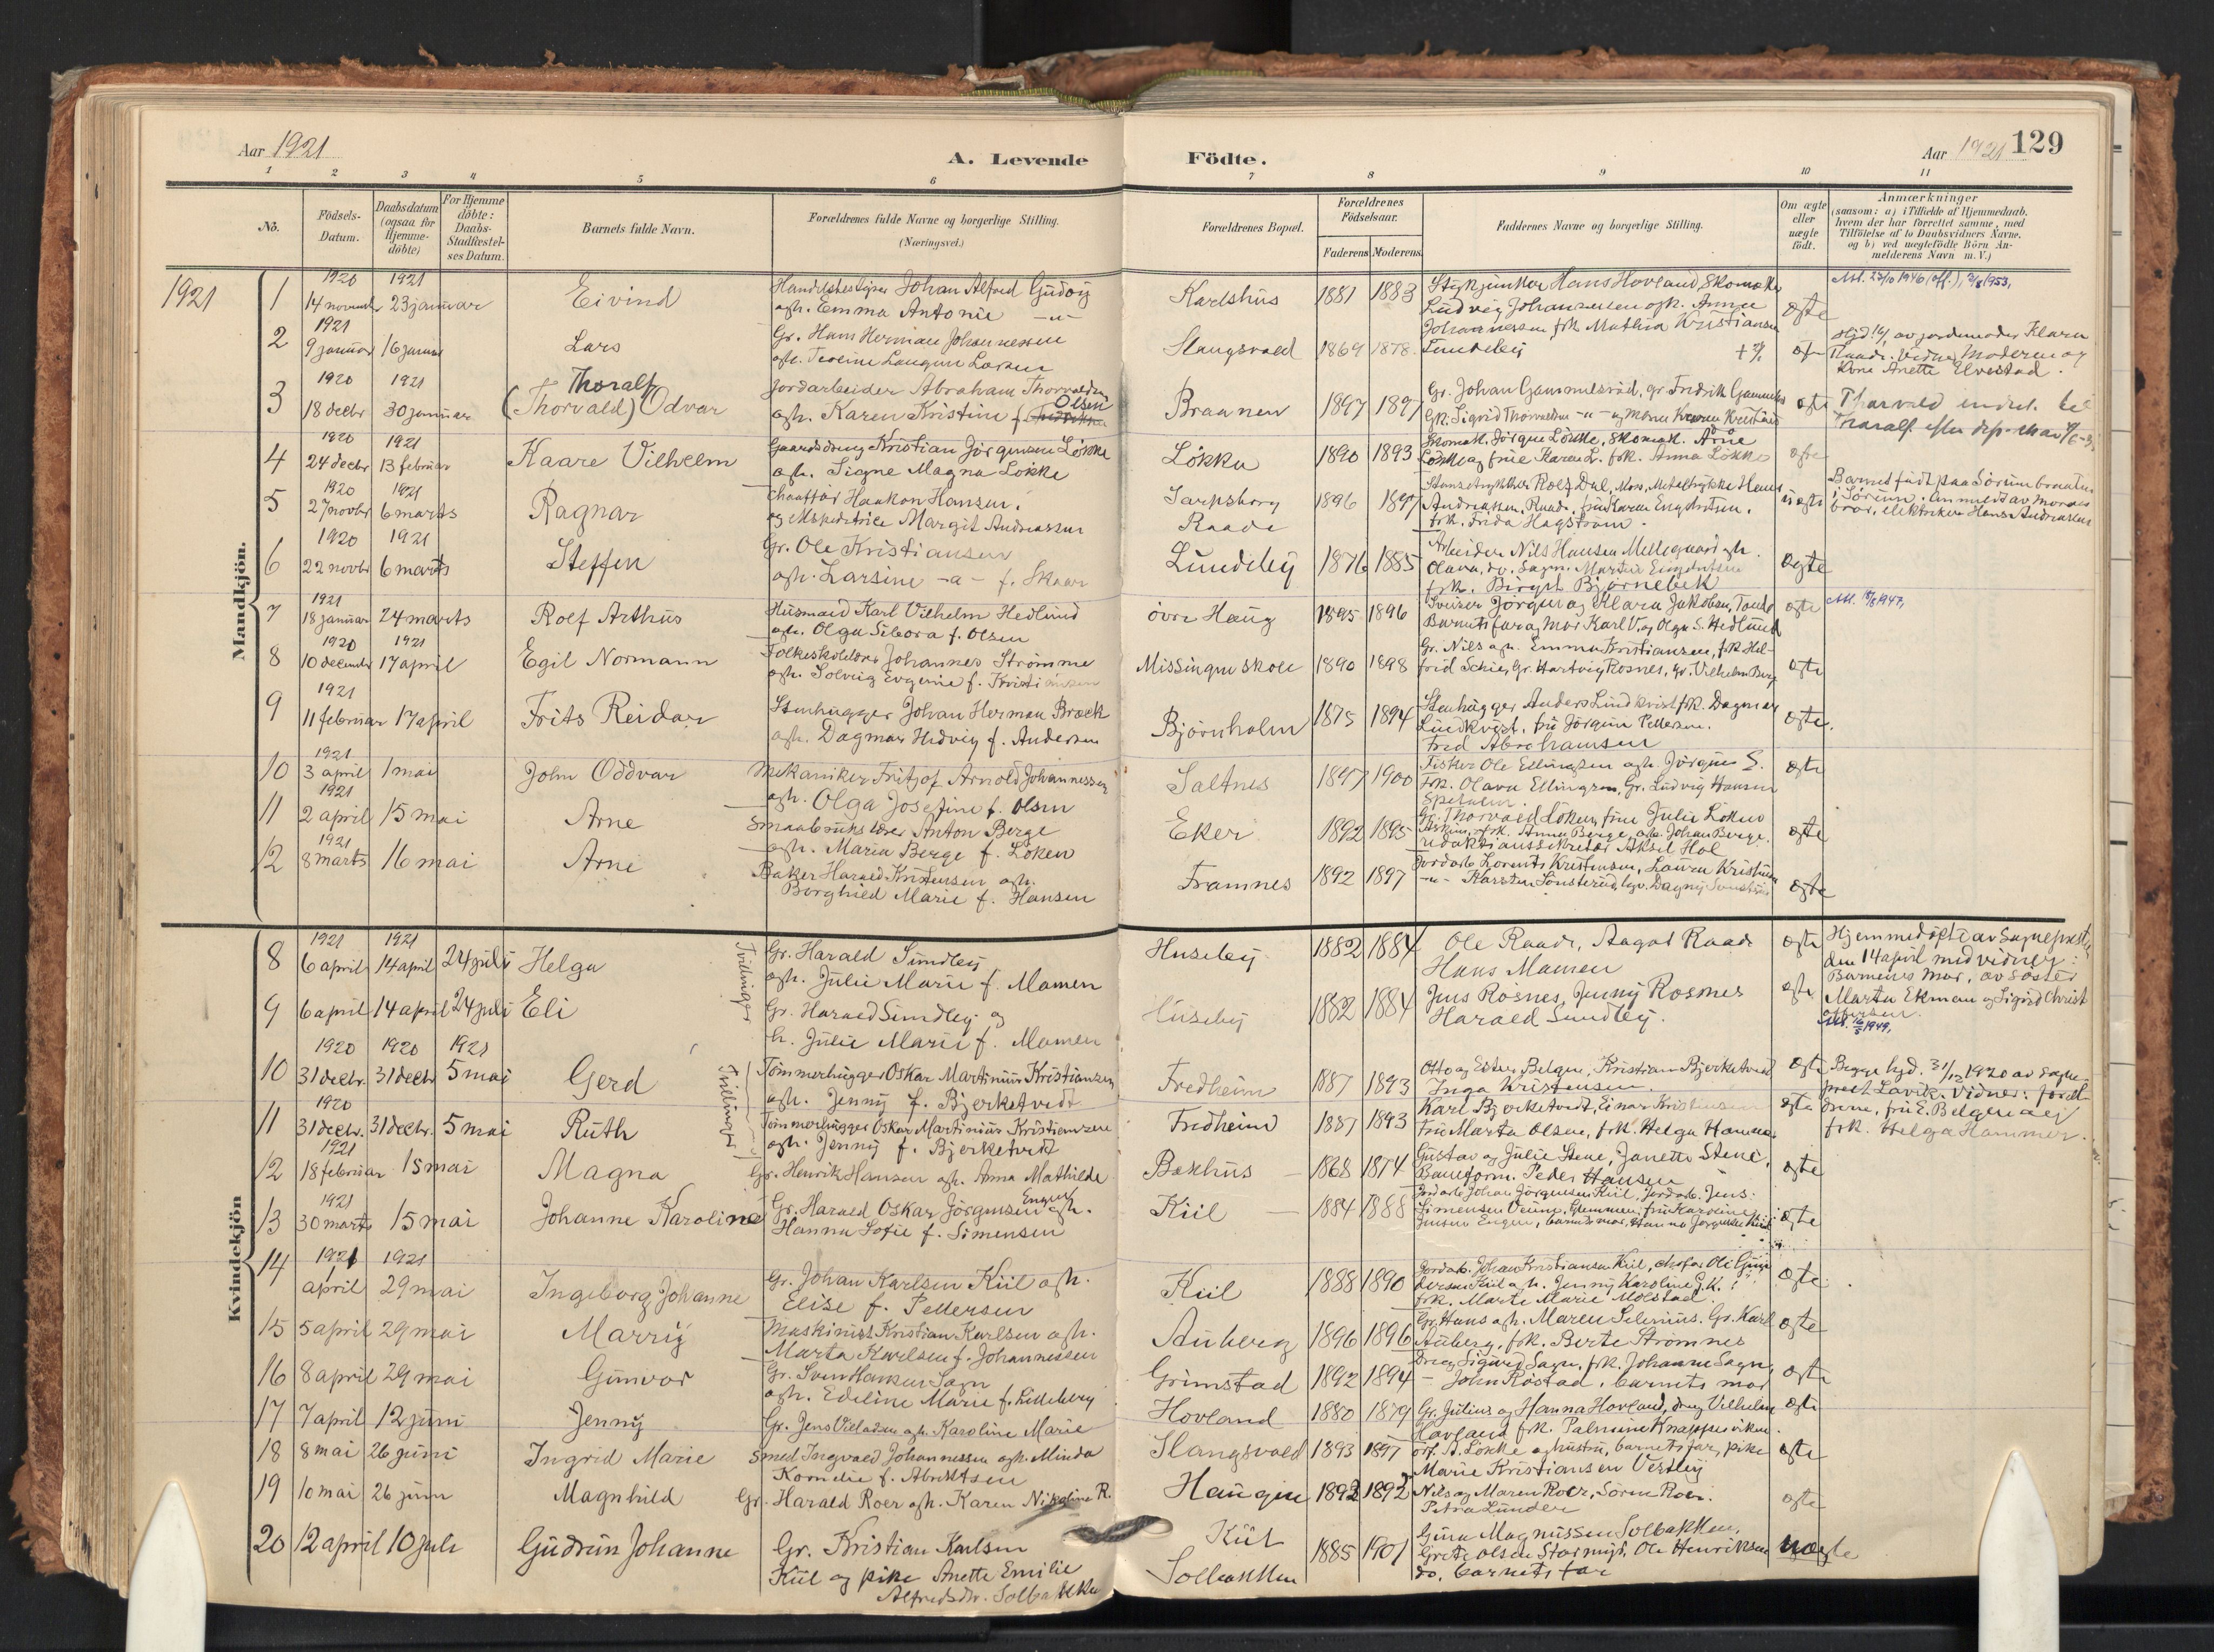 Aar 1921
A. Levende
Födte.
Aar 1921
129
1 2 3 4 5 6 7 8 9 10 11
No.
Födsels-Datum.
Daabsdatum (ogsaa for Hjemme-döbte)
For Hjemme döbte: Daabs-Stadfæstel-ses Datum.
Barnets fulde Navn.
Forældrenes fulde Navne og borgerlige Stilling.
(Næringsvei.)
Forældrenes Bopæl.
Forældrenes Födselsaar.
Faderens Moderens
Faddernes Navne og borgerlige Stilling.
Om ægte eller uægte födt.
Anmærkninger
(saasom: a) i Tilfælde af Hjemmedaab, hvem der har forrettet samme, med Tilföielse af to Daabsvidners Navne, og b) ved uægtefödte Börn An-melderens Navn m. V.)
1921
Mandkjön.
1920 1921
1 14 november 23 januar Eivind
Johan Alfred Gudoy
ogh. Emma Antonie -"-
Karlshus 1881 1883
Hans Hovland, Skomaker
Ludvig Johannessen ogh. Anna
Johannessen frk Mathea Kristiansen
ægte
1921
2 9 januar 16 januar Lars
Gr. Hans Herman Johannessen
Slangsvold 1869 1878
av jordmoder Klara
Moderen og
Kone Anette Elvestad.
1920 1921
3 18 decbr 30 januar (Thorvald) Thoralf Odvar
Jordarbeider Abraham Thorvaldsen
ogh. Karen Kristine f. Olsen
Braanen 1897 1897
Gr. Johan Gammelsröd, gr Fredrik
ægte
1920 1921
4 24 decbr 13 februar Kaare Vilhelm
Gaardsdreng Kristian Jörgensen Lökke
ogh. Signe Magna Lökke
Lökke 1890 1893
Skomak. Jörgen Lökke, Skomak. Arne
Lökke og frue Karen L. frk. Anna Lökke
ægte
1920 1921
5 27 novbr 6 marts Ragnar
Chaufför Haakon Hansen.
og Ekspeditrice Margit Andreassen
Sarpsborg
Raade
1896 1897
Andreassen, Raade, fru Karen Engebretsen.
frk. Frida Hagström.
uægte
Barnet födt paa Sörum
i Sörum. anmeldt av Morens
bror, elektriker Hans Andreassen
1920 1921
6 22 novbr 6 marts Steffen
Gr. Ole Kristiansen
ogh. Larsine -"- f. Skaar
Lundeby 1876 1885
Arbeider Nils Hansen
frk. Birgit Björnebek
ægte
1921
7 18 januar 24 marts Rolf Arthur
Husmand Karl Vilhelm Hedlund
ogh. Olga Sibora f. Olsen
övre Haug 1895 1896
Sveiser Jörgen og Klara Jakobsen,
Barnets far og Mor Karl V. og Olga S. Hedlund
ægte
1920 1921
8 10 december 17 april Egil Normann
Folkeskolelærer Johannes Strömme
ogh. Solveig Evgenie f. Kristiansen
Missingen skole 1890 1898
Gr. Nils ogh. Emma Kristiansen, frk Hel-
frid Schie, Gr. Hartvig Rosnes, Gr. Vilhelm Berg
ægte
1921
9 11 februar 17 april Frits Reidar
Stenhugger Johan Herman Bræck
ogh. Dagmar Hedvig f. Andersen
Björnholm 1875 1894
Stenhugger Anders Lindkvist frk. Dagmar
Lindkvist, fru Jörgine Pettersen.
Fred Abrahamsen
ægte.
1921
10 3 april 1 mai John Oddvar
Mekaniker Fritjof Arnold Johannessen
ogh. Olga Josefine f. Olsen
Saltnes 1897 1900
Fisker Ole Ellingsen ogh. Jörgine E.
Frk. Olava Ellingsen, Gr. Ludvig Hansen
ægte
1921
11 2 april 15 mai Arne
Smaabrukslærer Anton Berge
ogh. Maria Berge f. Löken
Eker 1892 1895
Gr. Thorvald Löken, frue Julie Löken
Askim, frk. Anna Berge, ogh. Johan Berge.
redaktionssekretær Aksel Hol
ægte
1921
12 8 marts 16 mai Arne
Baker Harald Kristensen ogh.
Borghild Marie f. Hansen
Framnes 1892 1897
Jordarb Lorents Kristensen, Laura Kristensen
ægte
Kvindekjön
1921 1921
8 6 april 14 april 24 juli Helga
Tvillinger
Gr. Harald Sundby
ogh. Julie Marie f. Mamen
Huseby 1882 1884
Ole Raade, Aagot Raade
Hans Mamen
ægte
Hjemmedöpt av Sogneprest
den 14 april med vidner:
Barnenes Mor, av söster
Marta Ekman og Sigrid Christ
offersen.
9 6 april 14 april 24 juli Eli
Gr. Harald Sundby og
h. Julie Marie f. Mamen
Huseby 1882 1884
Jens Rosnes, Jenny Rosnes
Harald Sundby.
ægte
1920 1920 1921
10 31 decbr. 31 decbr 5 mai Gerd
Tvillinger
Tömmerhugger Oskar Martinius Kristiansen
ogh. Jenny f. Bjerketvedt
Fredheim 1887 1893
Otto og Ester Belgen, Kristian Bjerketvedt
Inga Kristensen.
ægte
Begge hjd. 31/12 1920 av Sogne-
prest Lavik. Vidner: foræl-
drene, fru E. Belgen og
frk. Helga Hammer.
1920
11 31 decbr. 31 decbr. 5 mai Ruth
Tömmerhugger Oskar Martinius Kristiansen
ogh. Jenny f. Bjerketvedt
Fredheim 1887 1893
Karl Bjerketvedt, Einar Kristiansen
Fru Marta Olsen, frk. Helga Hammer
ægte
1921
12 18 februar 15 mai Magna
Gr. Henrik Hansen ogh. Anna Mathilde
Bakhus 1868 1874
Gustav og Julie Stene, Janette Stene,
Peder Hansen
ægte
1921
13 30 marts 15 mai Johanne Karoline
Gr. Harald Oskar Jörgensen Engen ogh.
Hanna Sofie f. Simensen
Kiil 1884 1888
Jordarb Johan Jörgensen Kiil, Jordarb. Jens
ægte
1921 1921
14 1 april 29 mai Ingeborg Johanne
Gr. Johan Karlsen Kiil ogh.
Elise f. Pettersen
Kiil 1888 1890
Jordarb. Johan Kristiansen Kiil,
frk. Marte Marie Molstad.
ægte
15 5 april 29 mai Marry
Maskinist Kristian Karlsen ogh.
Marta Karlsen f. Johannessen
Auberg 1896 1896
Gr. Hans ogh. Maren Selenius. Gr. Karl
Auberg, frk. Berte Strömnes
ægte
16 8 april 29 mai Gunvor
Gr. Sven Hansen Sagn
ogh. Edeline Marie f. Lilleberg
Grimstad 1892 1894
Dreng Sigurd Sagn, frk. Johanne Sagn,
- John Rostad, barnets mor
ægte
17 7 april 12 juni Jenny
Gr. Jens Villadsen ogh. Karoline Marie
Hovland 1880 1879
Gr. Julius og Hanna Hovland, dreng Vilhelm
Hovland frk. Palmine
ægte
18 8 mai 26 juni Ingrid Marie
Smed Ingvald Johannessen ogh. Minda
Kornelie f.
Slangsvold 1893 1897
A. Lökke og hustru, barnets far, pike
Marie Kristiansen Vestby
ægte
19 10 mai 26 juni Magnhild
Gr. Harald Roer ogh. Karen Nikoline R.
Haugen 1892 1892
Nils og Maren Roer, Sören Roer.
Petra Lunder
ægte
20 12 april 10 juli Gudrun Johanne
Gr. Kristian Karlsen
Kiil og pike Anette Emilie
Alfredsdtr. Solbakken
Kiil
Solbakken
1885 1901
Gina Magnussen Solbakken,
Grete Olsen, Ole Henriksen
do. barnets far
uægte